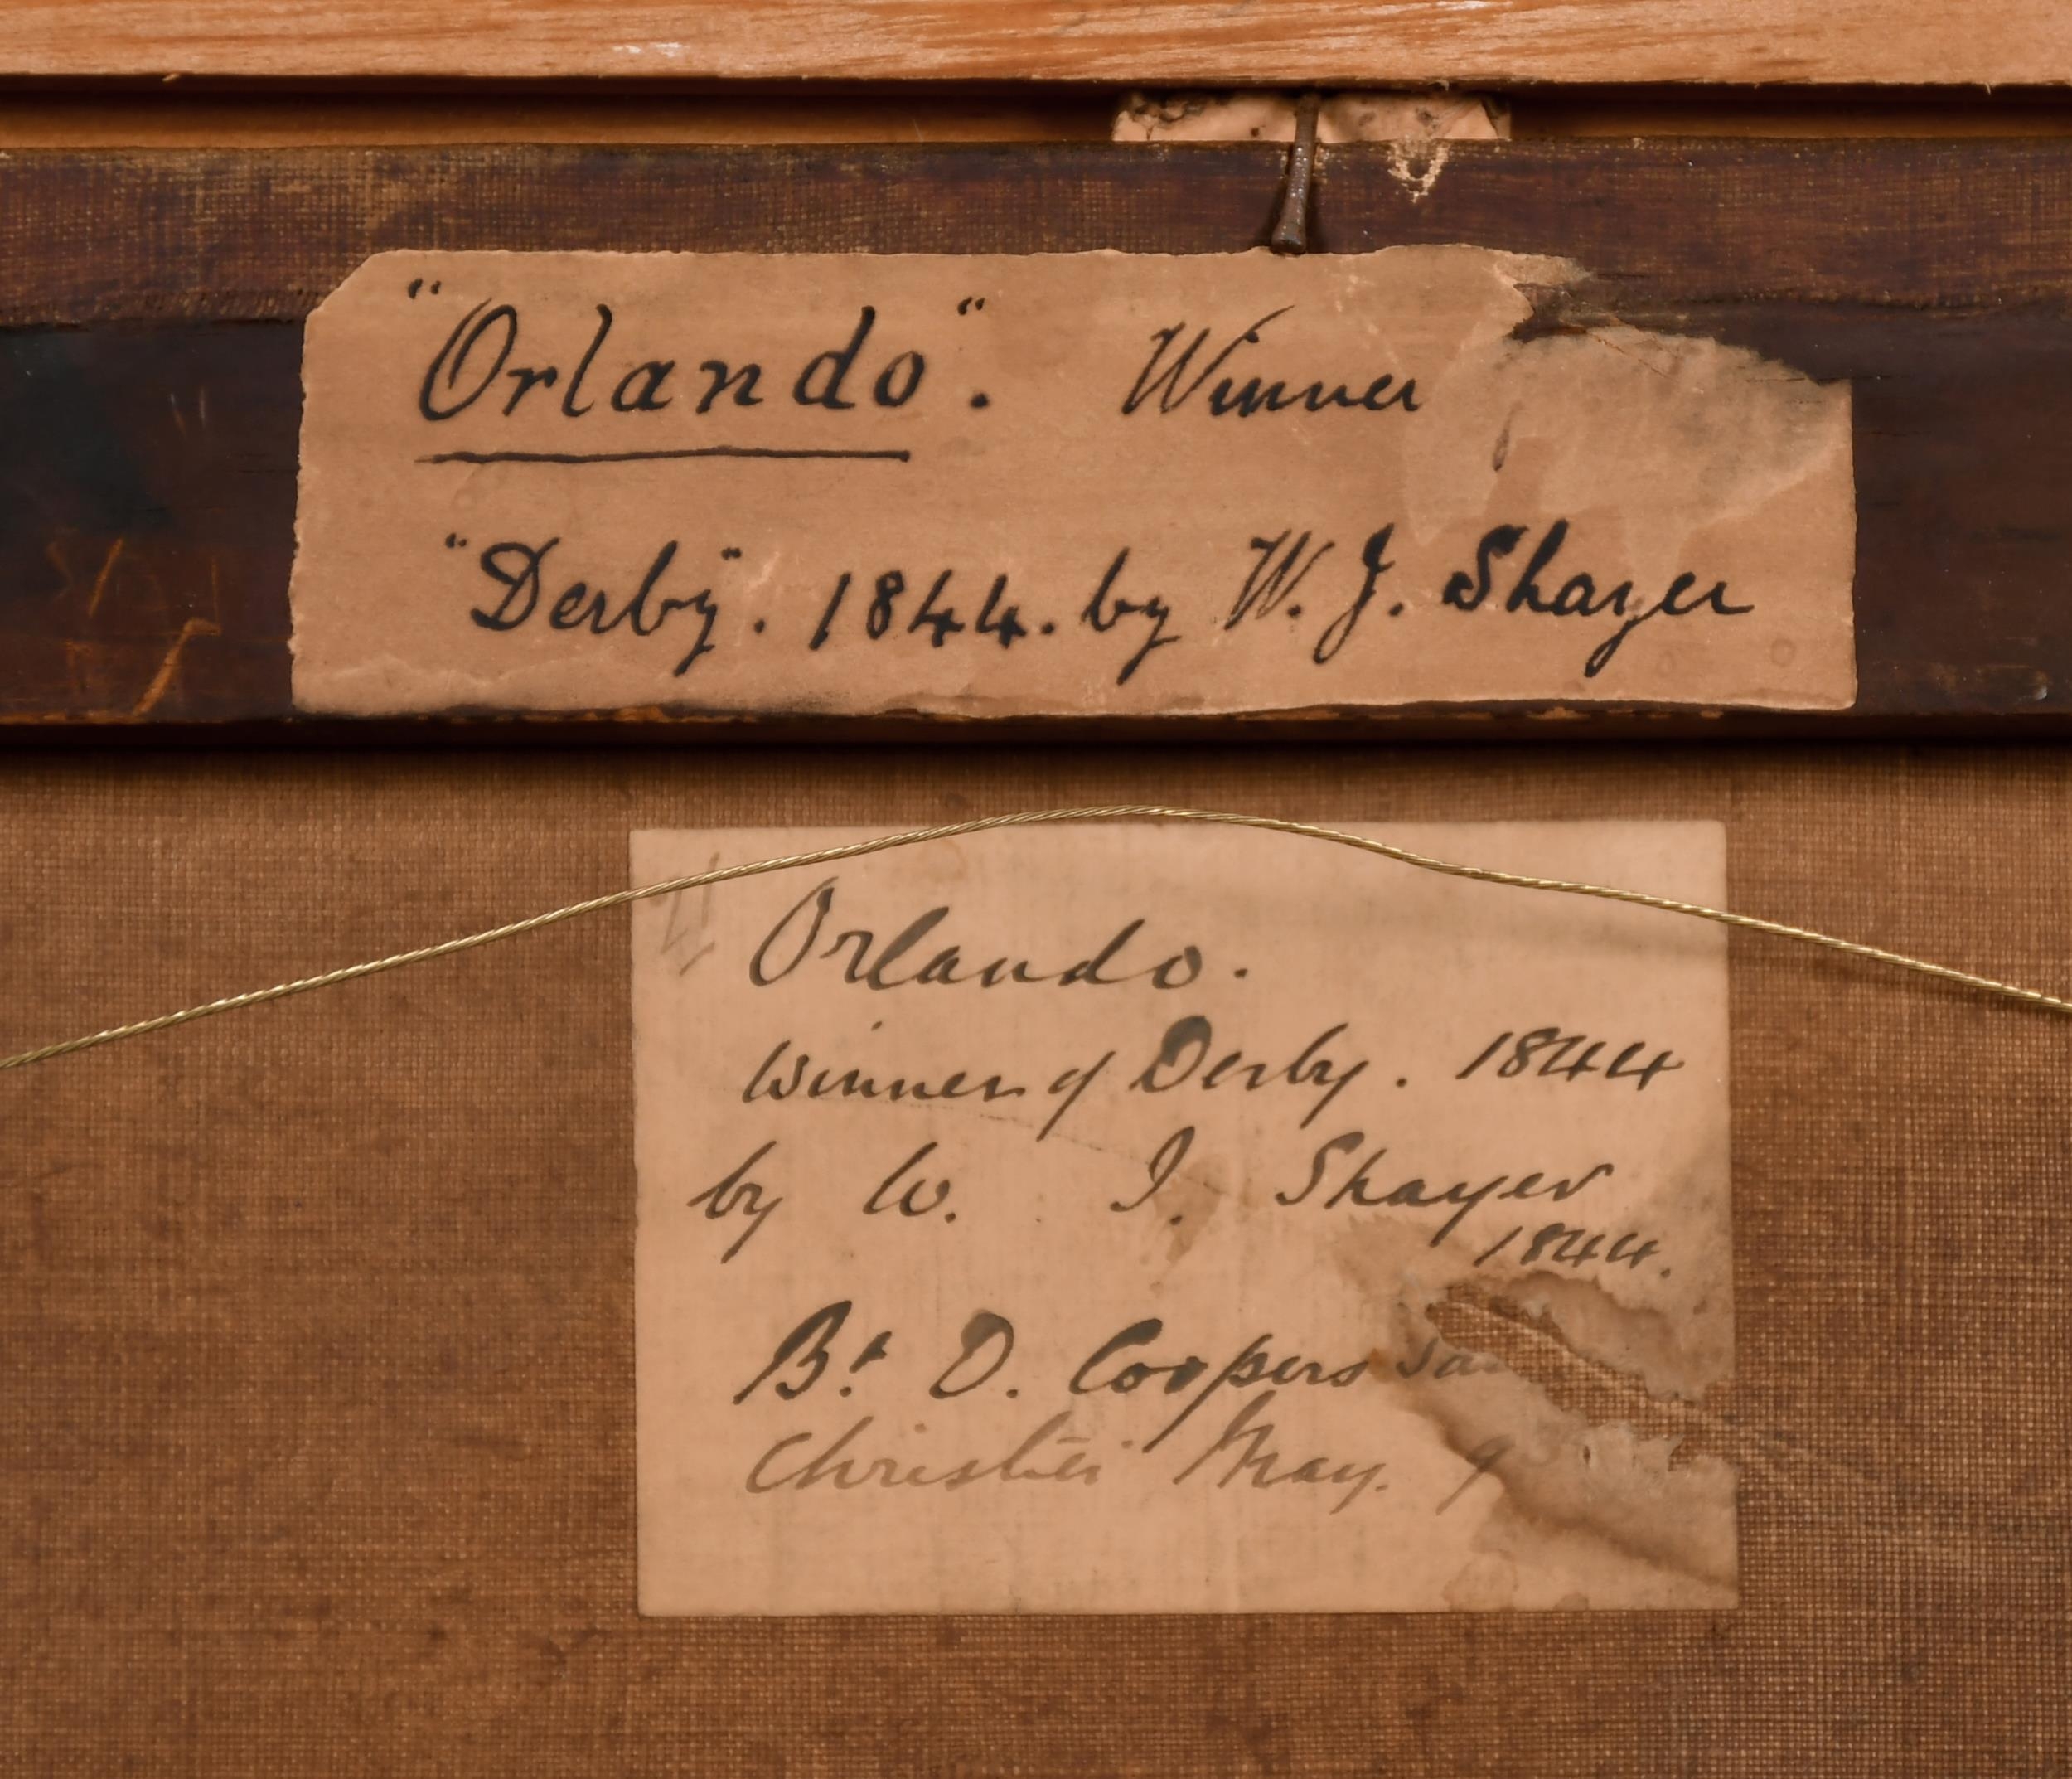 "Orlando". Winner
"Derby". 1844. by W. J. Shayer
Orlando.
Winner of Derby. 1844
by W. J. Shayer
1844.
Bt D. Coopers
Christies May. 9